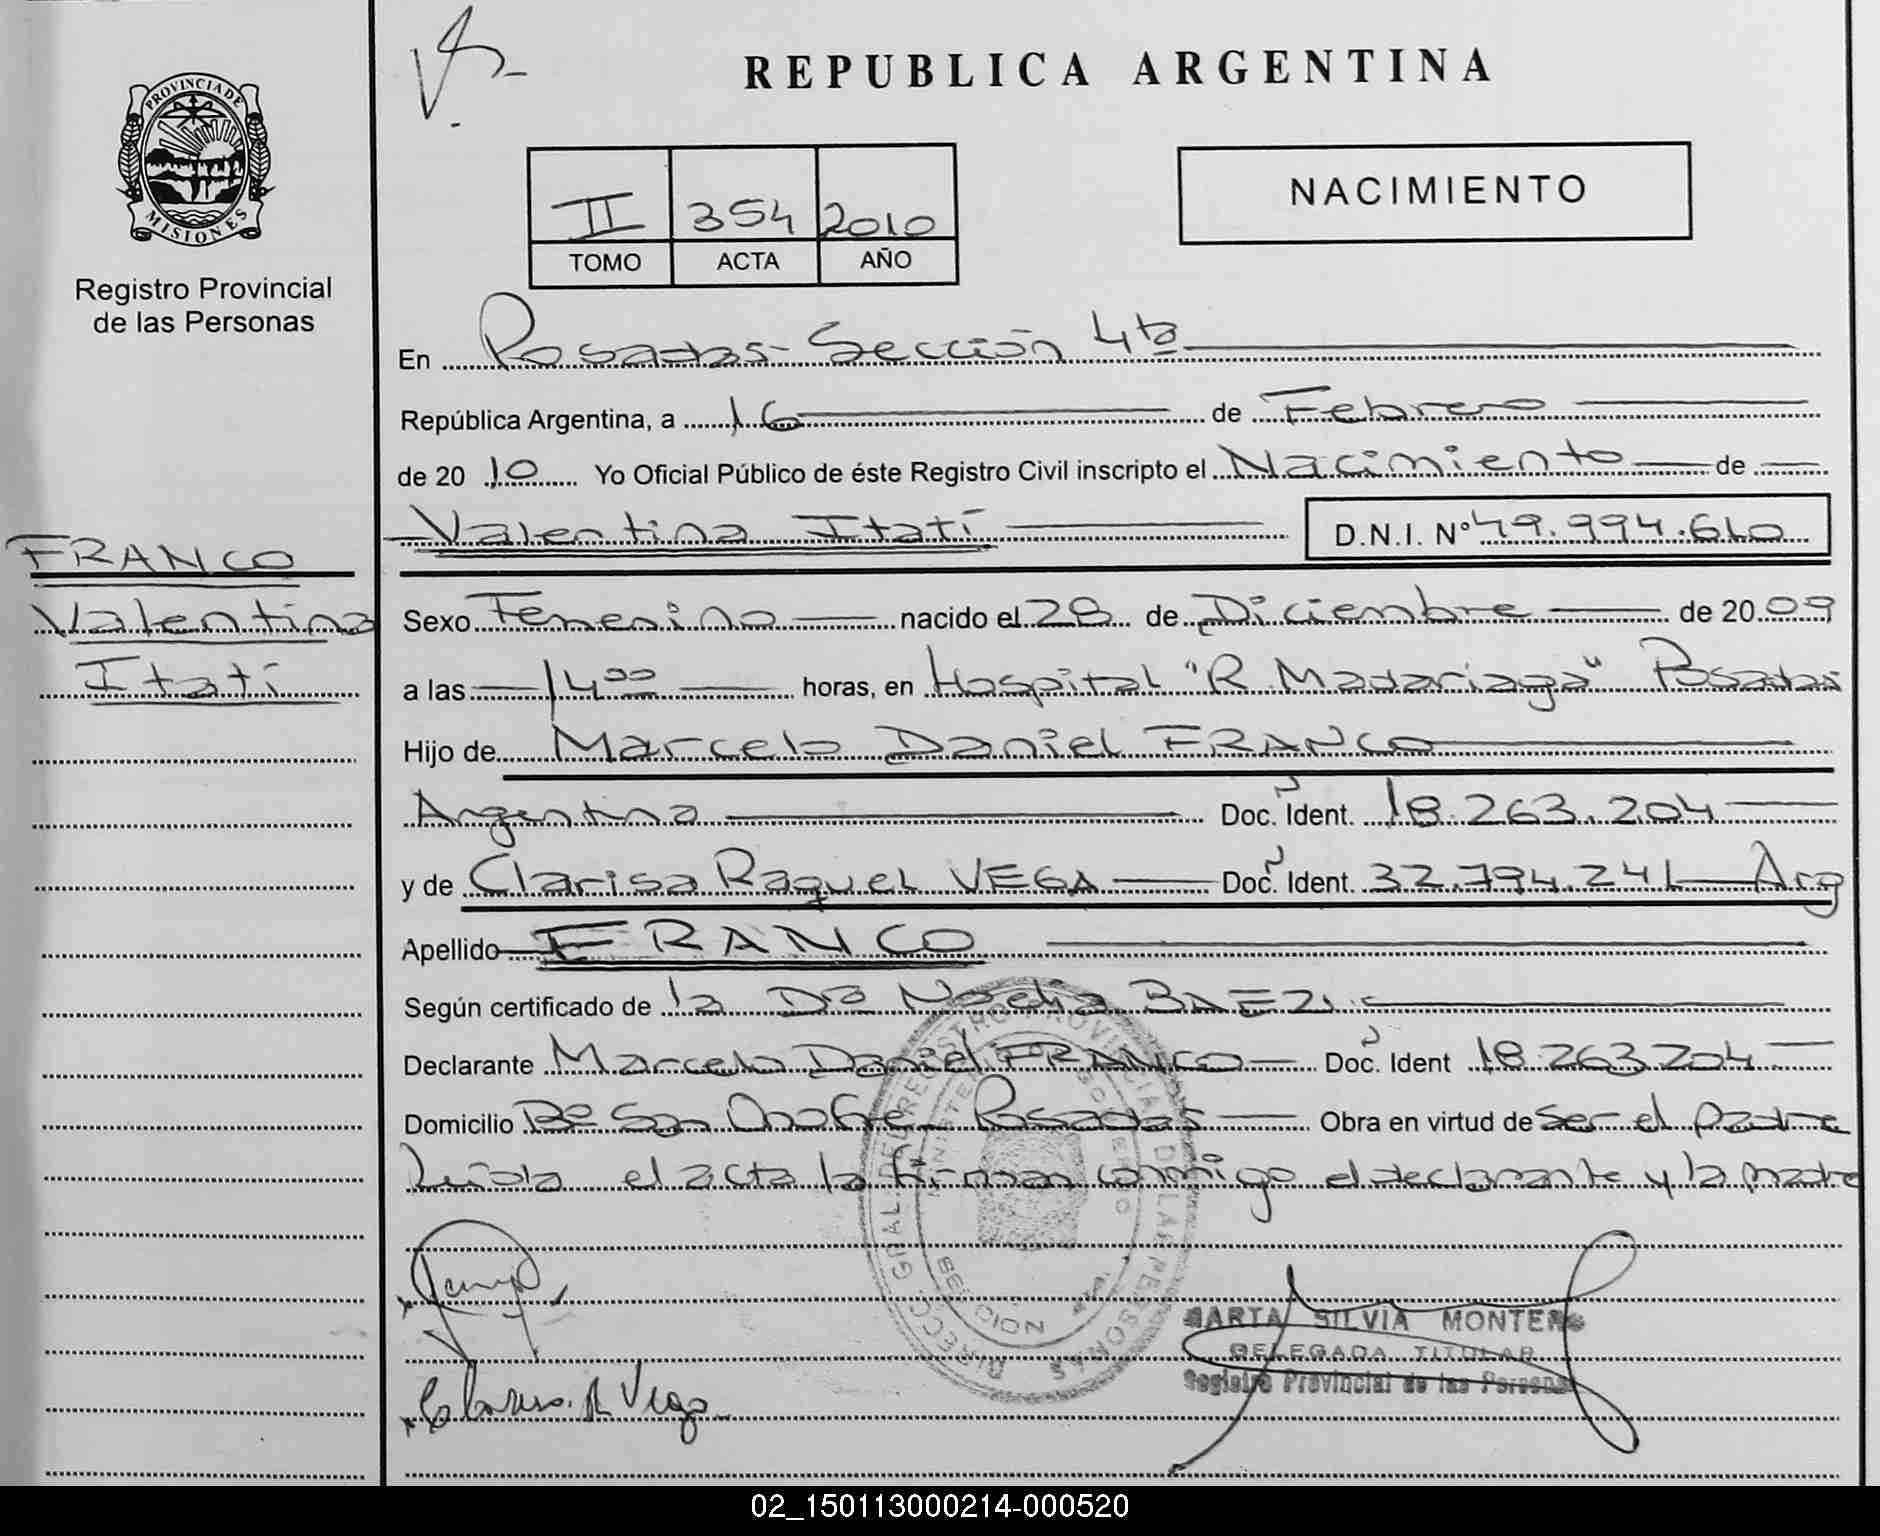 REPUBLICA ARGENTINA
PROVINCIA DE
MISIONES
Registro Provincial
de las Personas
II 354 2010
TOMO ACTA AÑO
NACIMIENTO
En Posadas - Sección 4ta
República Argentina, a 16 de Febrero
de 20 10 Yo Oficial Público de éste Registro Civil inscripto el Nacimiento de
Valentina Itatí D.N.I. Nº 49.994.610
FRANCO
Valentina
Itatí
Sexo Femenino nacido el 28 de Diciembre de 20 09
a las 14 00 horas, en Hospital "R. Madariaga" Posadas
Hijo de Marcelo Daniel FRANCO
Argentina Doc. Ident. 18.263.204
y de Clarisa Raquel VEGA Doc. Ident. 32.794.241 Arg
Apellido FRANCO
Según certificado de la Dra Noelia BAEZ
Declarante Marcelo Daniel FRANCO Doc. Ident 18.263.204
Domicilio Bº San Onofre Posadas Obra en virtud de ser el padre
Leída el acta la firman conmigo el declarante y la madre
DIRECC. GRAL. DEL REGISTRO PROVINCIAL DE LAS PERSONAS
MARTA SILVIA MONTERO
DELEGADA TITULAR
Registro Provincial de las Personas
R Vega
02_150113000214-000520